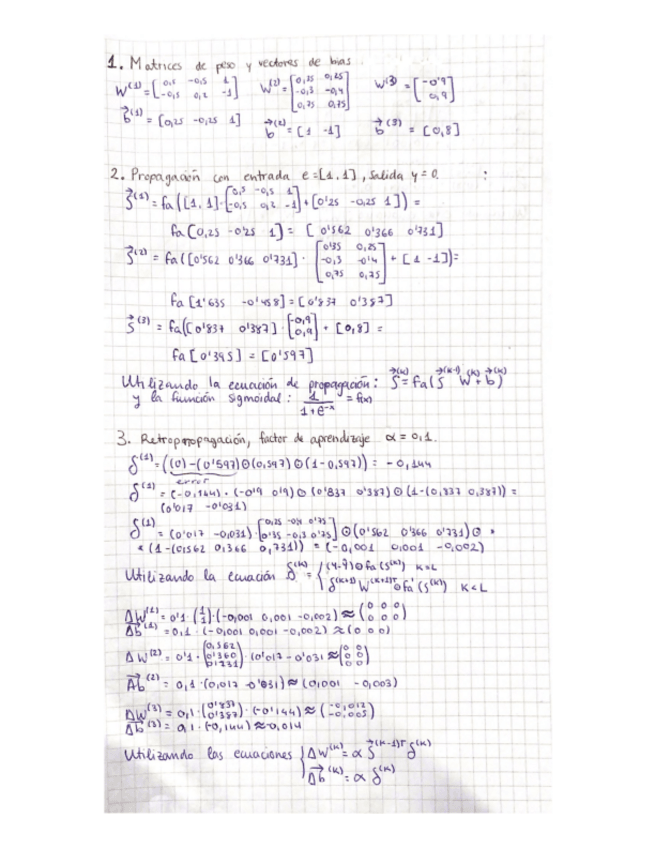 1. Matrices de peso y vectores de bias.
W⁽¹⁾ = [0,5 -0,5 1; -0,5 0,2 -1] W⁽²⁾ = [0,35 0,25; -0,3 -0,4; 0,75 0,75] W⁽³⁾ = [-0'9; 0,9]
b⃗⁽¹⁾ = [0,25 -0,25 1] b⃗⁽²⁾ = [1 -1] b⃗⁽³⁾ = [0,8]
2. Propagación con entrada e=[1,1], salida y=0. :
S⃗⁽¹⁾ = fa([1, 1]·[0,5 -0,5 1; -0,5 0,2 -1]+[0'25 -0,25 1]) =
fa[0,25 -0'25 1] = [0'562 0'366 0'731]
S⃗⁽²⁾ = fa([0'562 0'366 0'731] · [0'35 0,25; -0,3 -0'4; 0,75 0,75] + [1 -1]) =
fa[1'635 -0'458] = [0'837 0'387]
S⃗⁽³⁾ = fa([0'837 0'387]·[-0,9; 0,9] + [0,8] =
fa[0'395] = [0'597]
Utilizando la ecuación de propagación: S⃗⁽ᴷ⁾ = fa(S⃗⁽ᴷ⁻¹⁾ W⁽ᴷ⁾ + b⃗⁽ᴷ⁾)
y la función sigmoidal: 1/(1+e⁻ˣ) = f(x)
3. Retropropagación, factor de aprendizaje α = 0,1.
δ⁽¹⁾ = ((0)-(0'597)⊙(0,597)⊙(1-0,597)) = -0,144
error
δ⁽¹⁾ = (-0,144) · (-0'9 0'9) ⊙ (0'837 0'387) ⊙ (1-(0,837 0,387)) =
(0'017 -0'031)
δ⁽¹⁾ = (0'017 -0,031)·[0,25 -0,4 0'75; 0'35 -0,3 0'75] ⊙ (0'562 0'366 0'731) ⊙ *
* (1-(0,562 0,366 0,731)) = (-0,001 0,001 -0,002)
Utilizando la ecuación δ⁽ᴷ⁾ = { (y-ŷ)⊙fa'(S⁽ᴷ⁾) K=L
δ⁽ᴷ⁺¹⁾ W⁽ᴷ⁺¹⁾ᵀ ⊙fa'(S⁽ᴷ⁾) K<L
ΔW⁽¹⁾ = 0'1 · (1; 1)·(-0,001 0,001 -0,002) ≈ (0 0 0; 0 0 0)
Δb⃗⁽¹⁾ = 0,1 · (-0,001 0,001 -0,002) ≈ (0 0 0)
ΔW⁽²⁾ = 0'1 · (0,562; 0'360; 0'731) · (0'017 -0'031 ≈ (0 0; 0 0; 0 0)
Δb⃗⁽²⁾ = 0,1 · (0,017 -0'031) ≈ (0,001 -0,003)
ΔW⁽³⁾ = 0,1 · (0'837; 0'387) · (-0'144) ≈ (-0,012; -0,005)
Δb⃗⁽³⁾ = 0,1 · (-0,144) ≈ -0,014
Utilizando las ecuaciones { ΔW⁽ᴷ⁾ = α S⃗⁽ᴷ⁻¹⁾ᵀ δ⁽ᴷ⁾
Δb⃗⁽ᴷ⁾ = α δ⁽ᴷ⁾